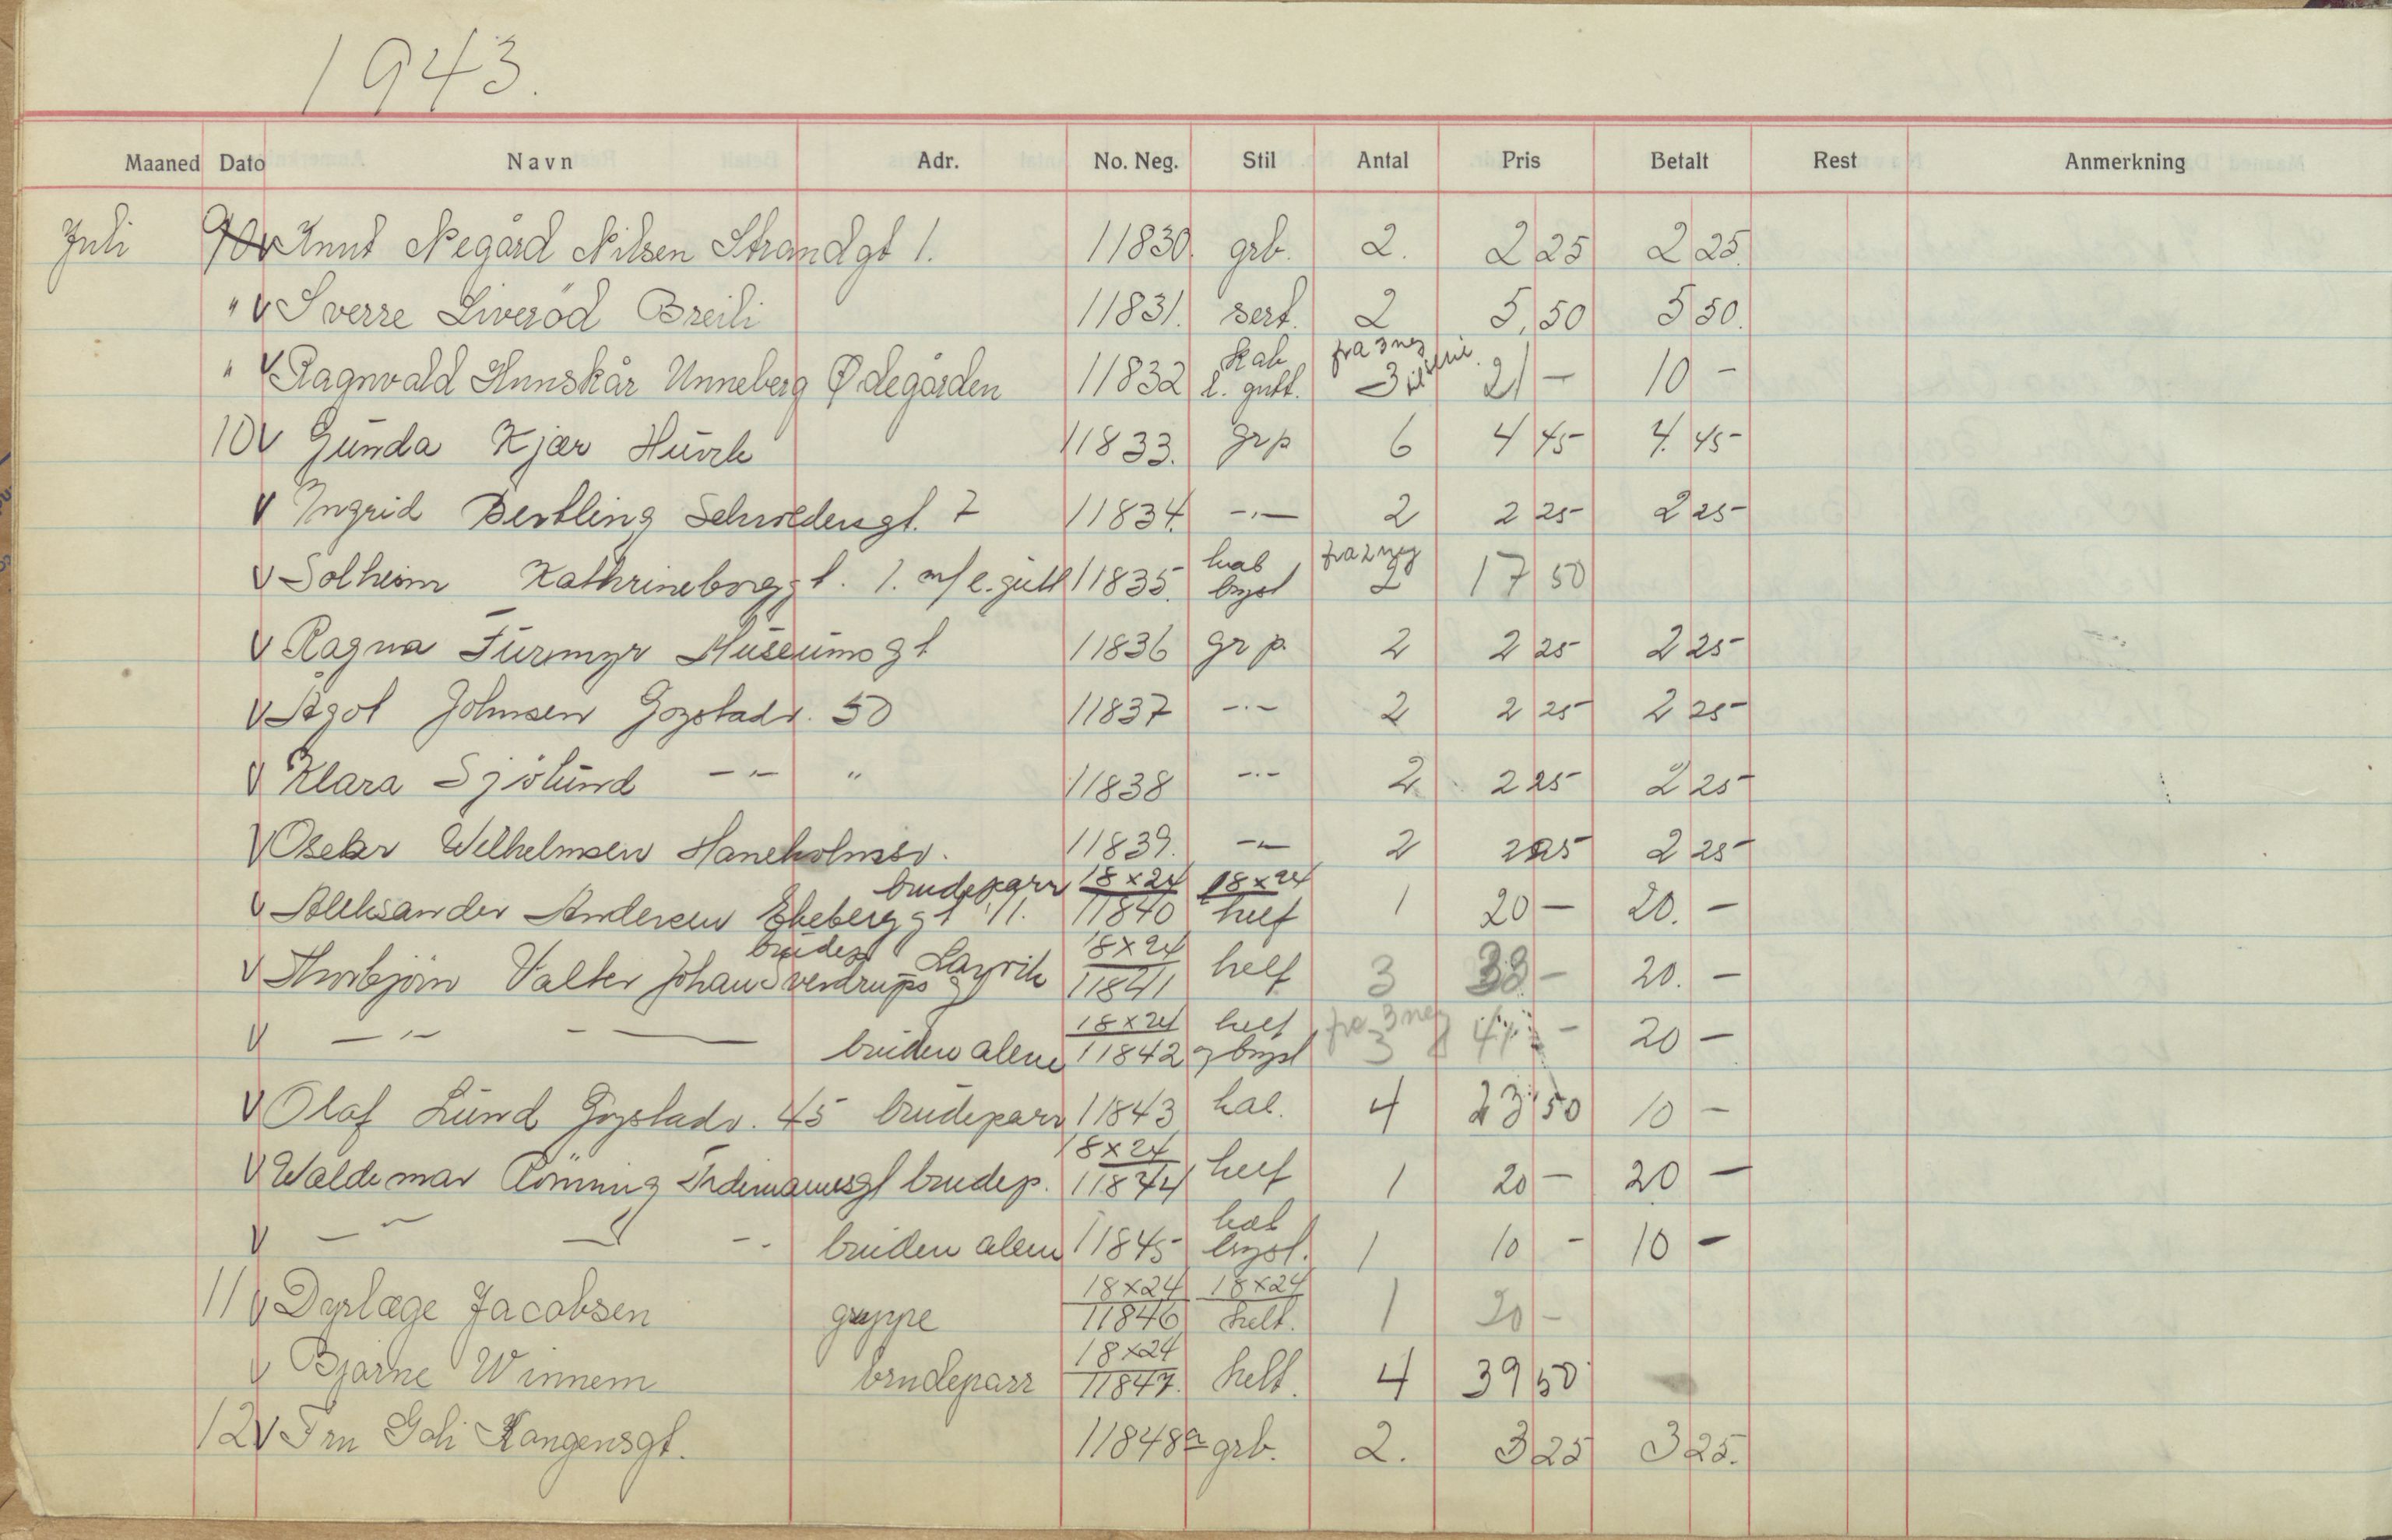 1943.
Maaned Dato Navn Adr. No. Neg. Stil Antal Pris Betalt Rest Anmerkning
Juli 9 v Knut Negård Nilsen Strandgt 1. 11830. grb. 2. 2 25 2 25.
" v Sverre Liveröd Breili 11831. sert. 2 5,50 5 50.
" v Ragnvald Hunskår Unneberg Ødegården 11832 kab l. gutt. fra 3 neg 3 21 — 10 —
10 v Gunda Kjær 11833. grp 6 4 45 4. 45
v Ingrid Bertling 7 11834. -·- 2 2 25 2 25
v Solheim Kathrineborggt. 1. m/ l. gutt 11835. kab bryst fra 2 neg 2 17 50
v Ragna Furmyr Museumsgt 11836 grp. 2 2 25 2 25
v Ågot Johnsen Gogstadv. 50 11837 -·- 2 2 25 2 25
v Klara Sjölund -"- " 11838 -·- 2 2 25 2 25
v Oskar Wilhelmsen Haneholmsv. 11839. -·- 2 2 25 2 25
v Aleksander Andersen Ekeberggt 11. brudeparr 18×24 11840 18×24 helf 1 20 — 20. —
v Thorbjörn Valter Johan Sverdrupsg brudep Larvik 18×24 11841 helf 3 — 20. —
v -"- bruden alene 18×24 11842 helf og bryst fra 3 neg 3 — 20 —
v Olaf Lund Gogstadv. 45 brudeparr 11843 kab. 4 23 50 10 —
v Waldemar Rönning Tidemansgt brudep. 18×24 11844 helf 1 20 — 20 —
v -"- bruden alene 11845 kab bryst. 1 10 — 10 —
11 v Dyrlæge Jacobsen gruppe 18×24 11846 18×24 helt. 1 20 —
v Bjarne Winnem brudeparr 18×24 11847. helt. 4 39 50
12 v Fru Goli Kongensgt. 11848a grb. 2. 3 25 3 25.